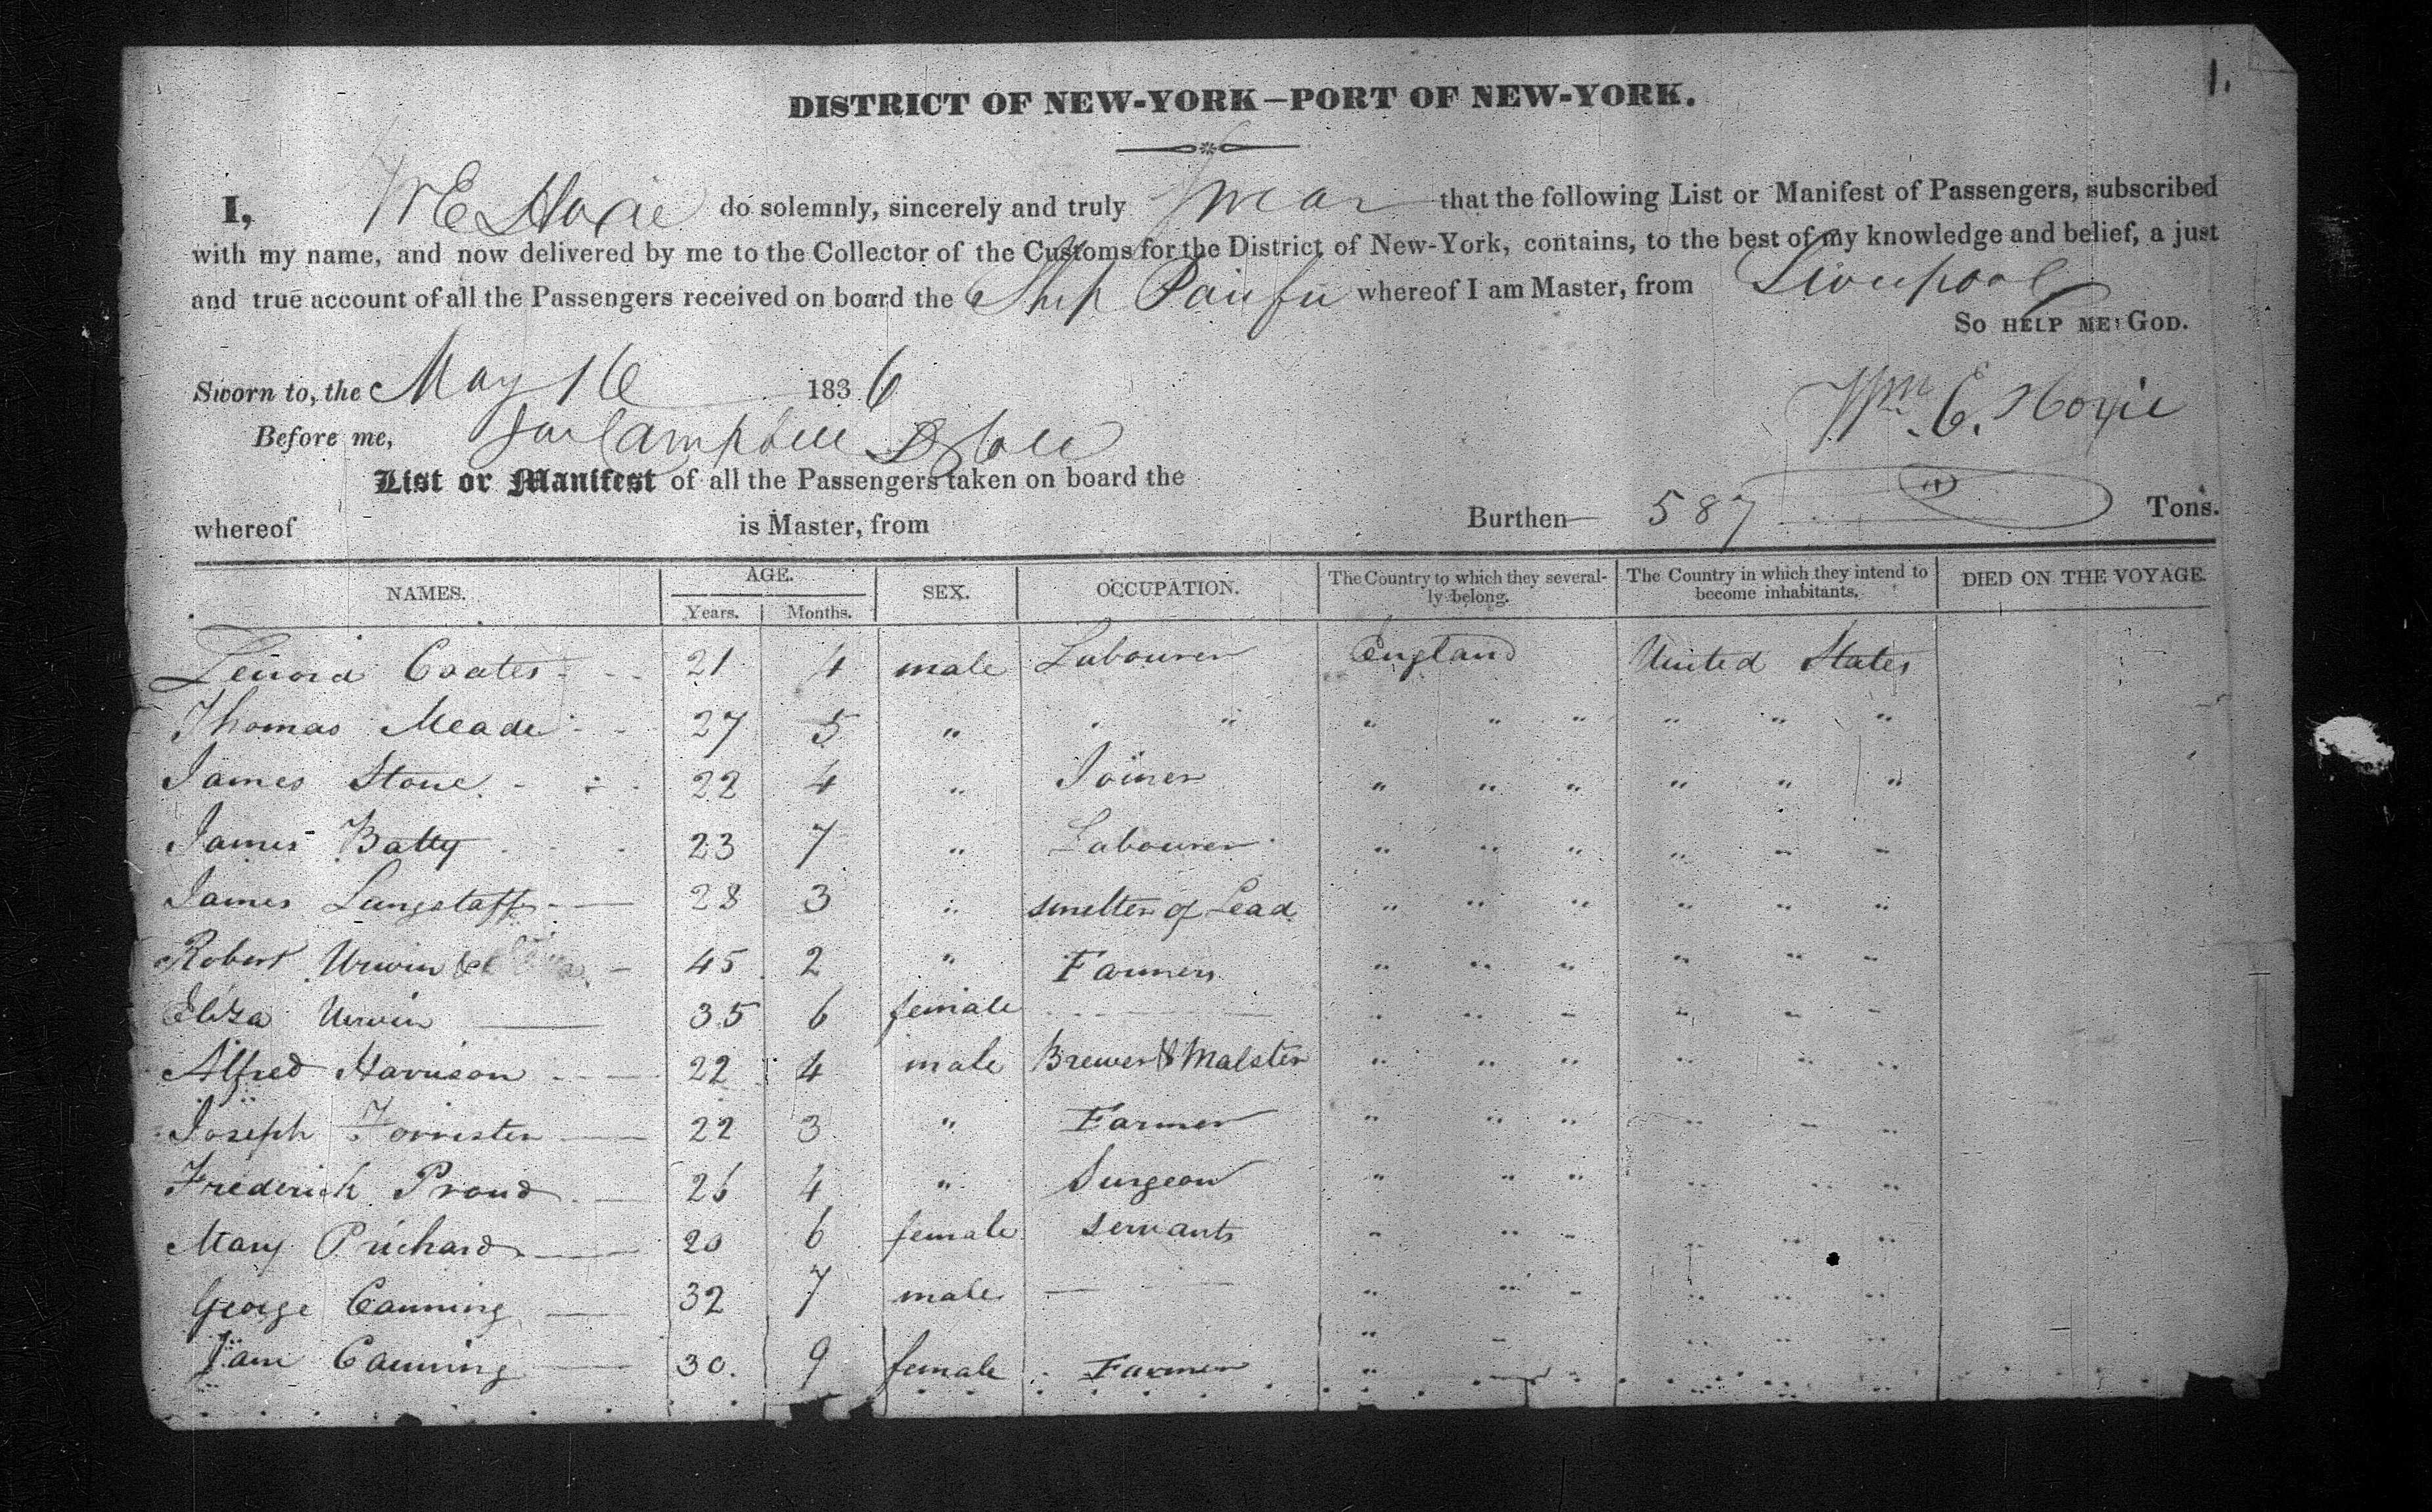 1.
DISTRICT OF NEW-YORK—PORT OF NEW-YORK.
I, W E Hoxie do solemnly, sincerely and truly swear that the following List or Manifest of Passengers, subscribed
with my name, and now delivered by me to the Collector of the Customs for the District of New-York, contains, to the best of my knowledge and belief, a just
and true account of all the Passengers received on board the Ship whereof I am Master, from Liverpool
So HELP ME GOD.
Sworn to, the May 16 1836
Wm E. Hoxie
Before me, Campbell
List or Manifest of all the Passengers taken on board the
whereof is Master, from Burthen 587 Tons.
NAMES. AGE. SEX. OCCUPATION. The Country to which they several- The Country in which they intend to DIED ON THE VOYAGE.
Years. Months. ly belong. become inhabitants.
Lenord Coates 21 4 male Labourer England United States
Thomas Meade 27 5 " " " " " " " " "
James Stone 22 4 " Joiner " " " " " "
James Batty 23 7 " Labourer " " " " " "
James Lungstaff 28 3 " smelter of Lead " " " " " "
Robert Urwin 45 2 " Farmers " " " " " "
Eliza Urwin 35 6 female " " " " " "
Alfred Harrison 22 4 male Brewer & Malster " " " " " "
Joseph Forrister 22 3 " Farmer " " " " " "
Frederick Proud 26 4 " Surgeon " " " " " "
Mary Prichard 20 6 female servants " " " " " "
George Canning 32 7 male — " " " " " "
Jane Canning 30. 9 female Farmer " " " " "